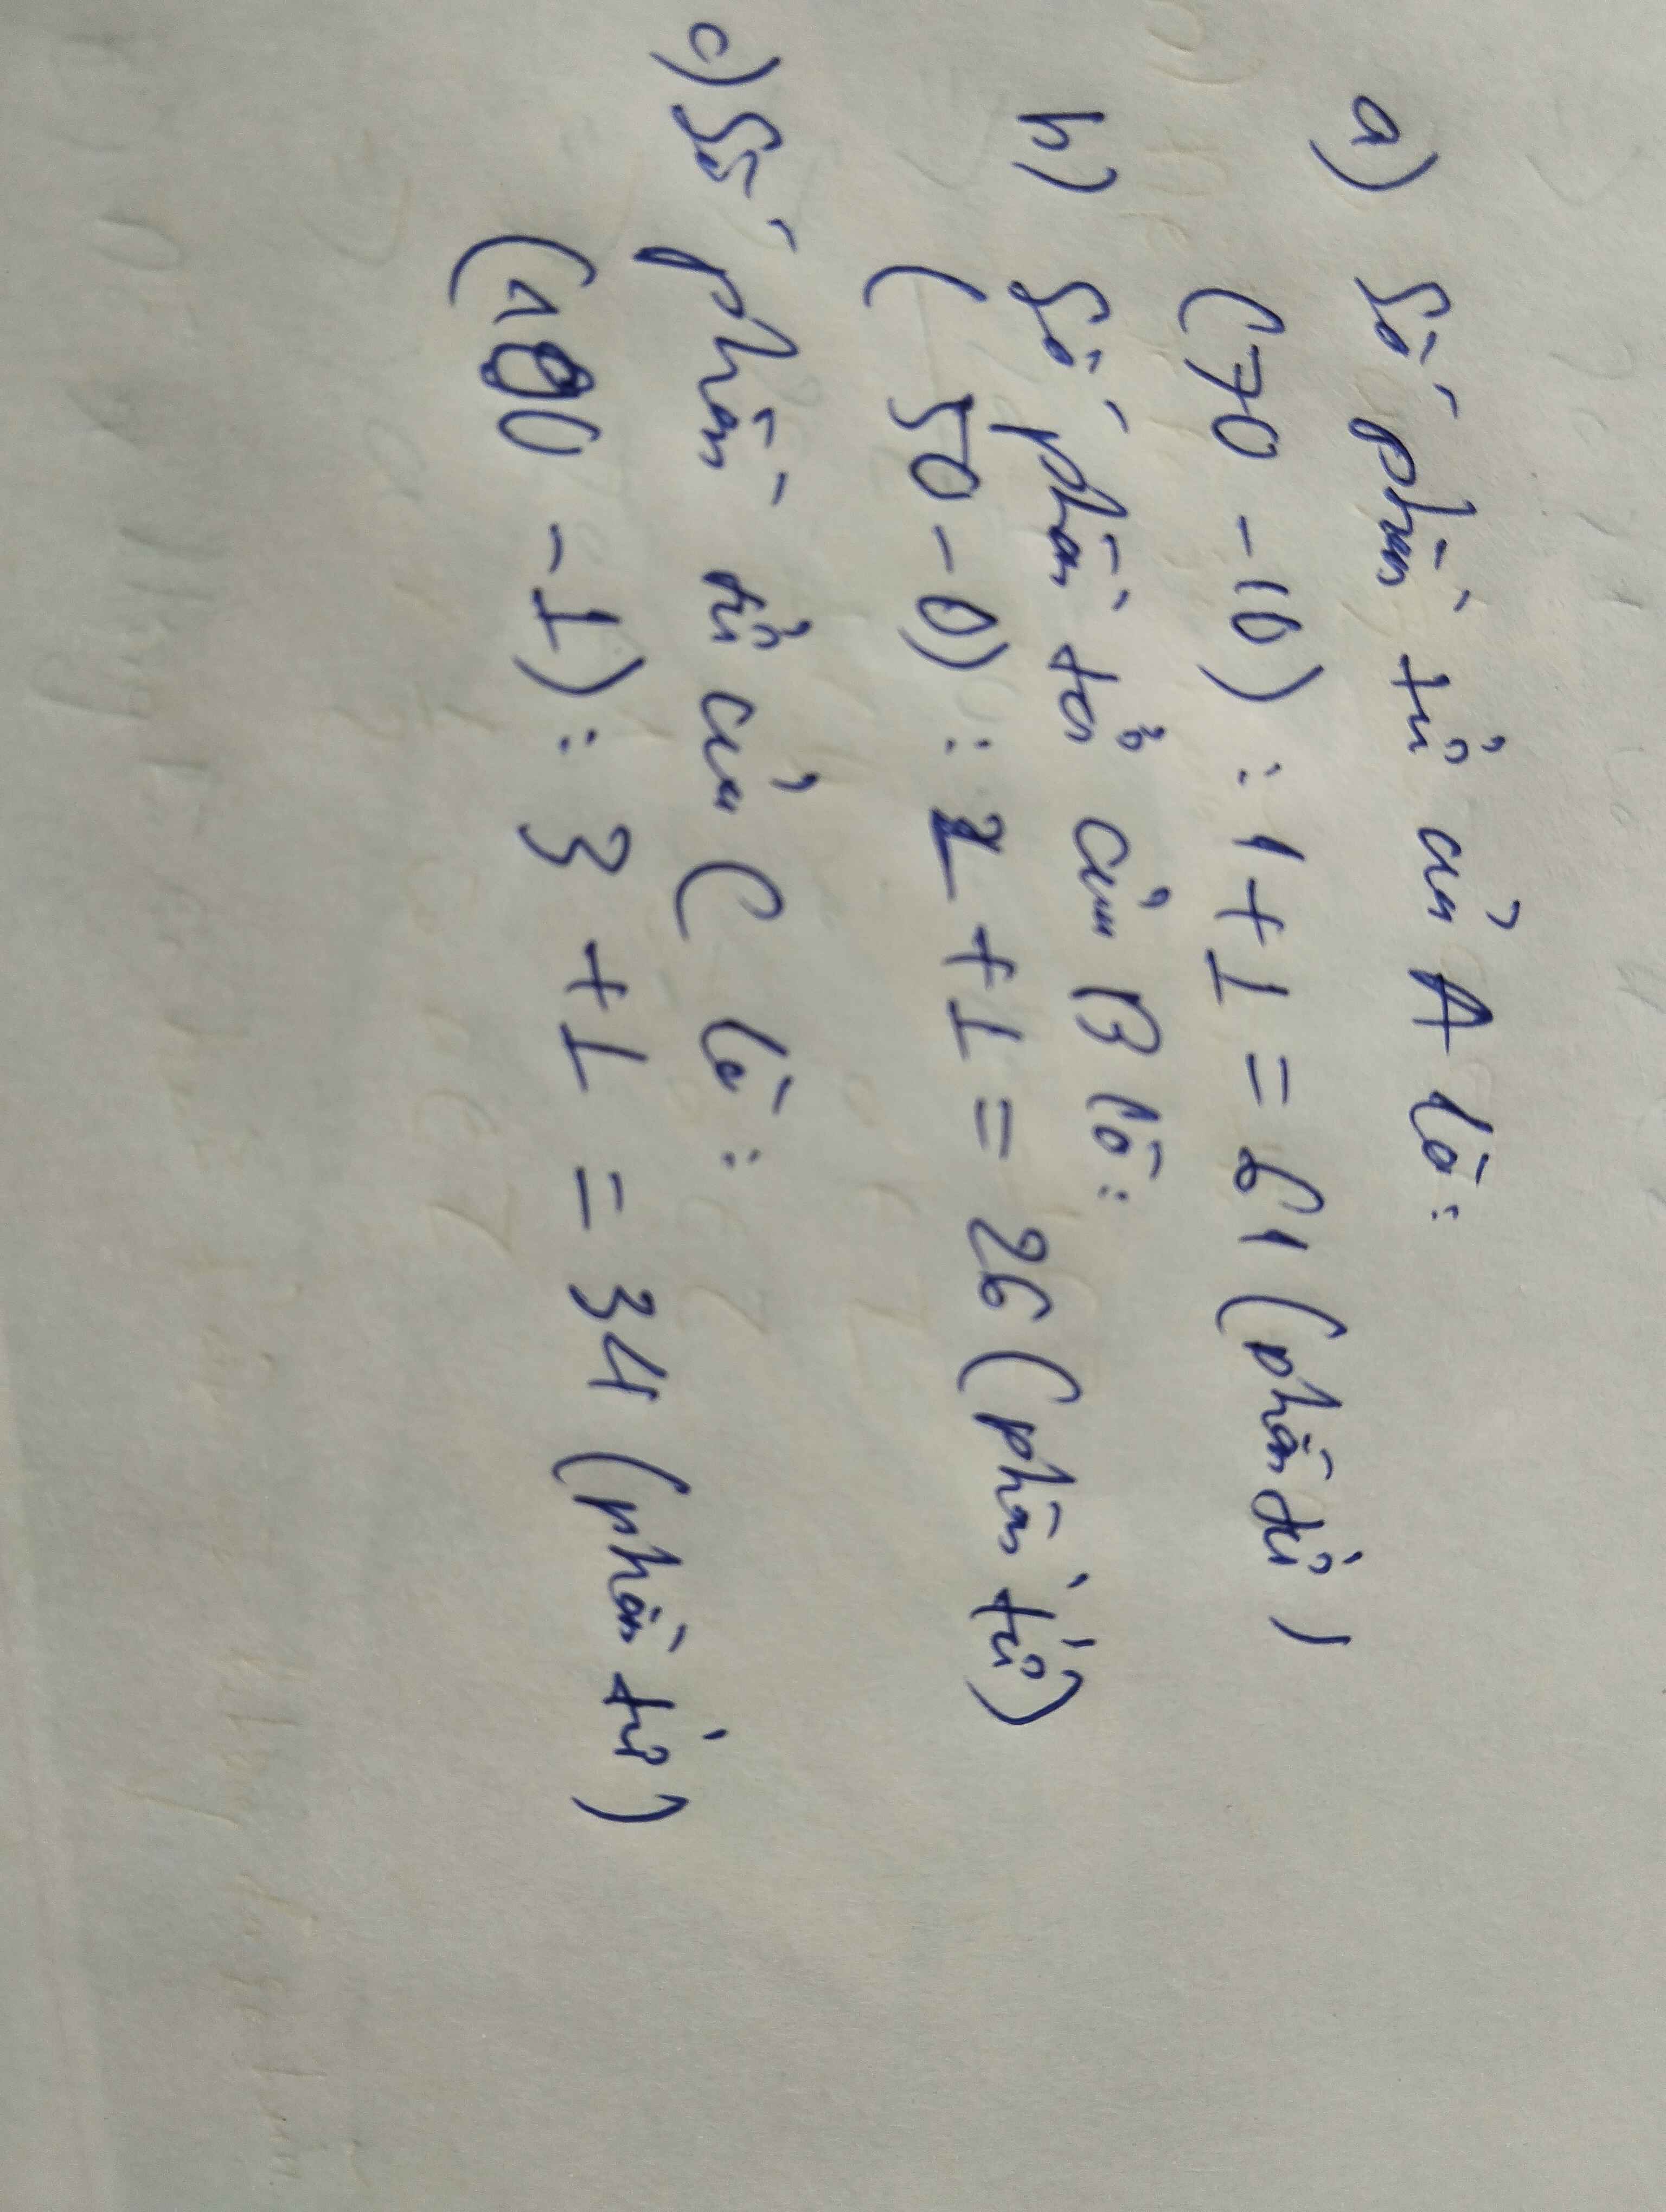 a) Số phần tử của A là:
(70 - 10) : 1 + 1 = 61 (phần tử)
b) Số phần tử của B là:
(50 - 0) : 2 + 1 = 26 (phần tử)
c) Số phần tử của C là:
(100 - 1) : 3 + 1 = 34 (phần tử)